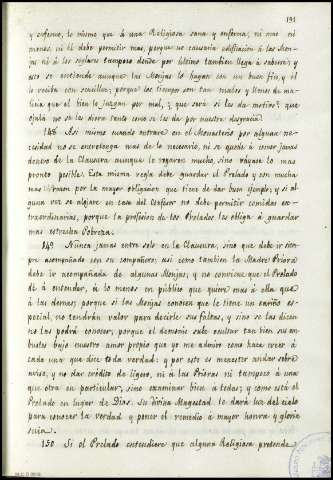 191
y enfermo, lo mismo que á una Religiosa sana y enferma; ni mas ni
menos, ni él debe permitir mas, porque no causaria edificacion á las Mon-
jas ni á los seglares tampoco donde por último tambien llega á saberse; y
esto se entiende aunque las Monjas lo hagan con un buen fin, y él
lo reciba con sencillez; porque los tiempos son tan malos y llenos de ma-
licia que el bien lo juzgan por mal, ¿que será si les da motivo? que
ojalá no se les diera tanto como se les da por nuestra desgracia.
148. Asi mismo cuando entrare en el Monasterio por alguna ne-
cesidad no se entretenga mas de lo necesario, ni se quede á comer jamas
dentro de la Clausura aunque le rogaren mucho, sino váyase lo mas
pronto posible. Esta misma regla debe guardar el Prelado y con mucha
mas razon por la mayor obligacion que tiene de dar buen ejemplo; y si al-
guna vez se alojare en casa del Confesor no debe permitir comidas ex-
traordinarias, porque la profesion de los Prelados les obliga á guardar
mas estrecha Pobreza.
149. Nunca jamas entre solo en la Clausura, sino que debe ir siem-
pre acompañado con su compañero; asi como tambien la Madre Priora
debe ir acompañada de algunas Monjas, y no conviene que el Prelado
dé á entender, á lo menos en público que quiere mas á ella que
á las demas; porque si las Monjas conocen que le tiene un cariño es-
pecial, no tendrán valor para decirle sus faltas, y sino se las dicen
no las podrá conocer, porque el demonio sabe ocultar tan bien sus em-
bustes bajo nuestro amor propio que yo me admiro como hace creer á
cada una que dice toda verdad: y por esto es menester andar sobre
aviso, y no dar crédito de ligero, ni á las Prioras ni tampoco á una
que otra en particular, sino examinar bien á todas; y como está el
Prelado en lugar de Dios. Su divina Magestad le dará luz del cielo
para conocer la verdad y poner el remedio á mayor honra y gloria
suia.
150. Si el Prelado entendiere que alguna Religiosa pretende